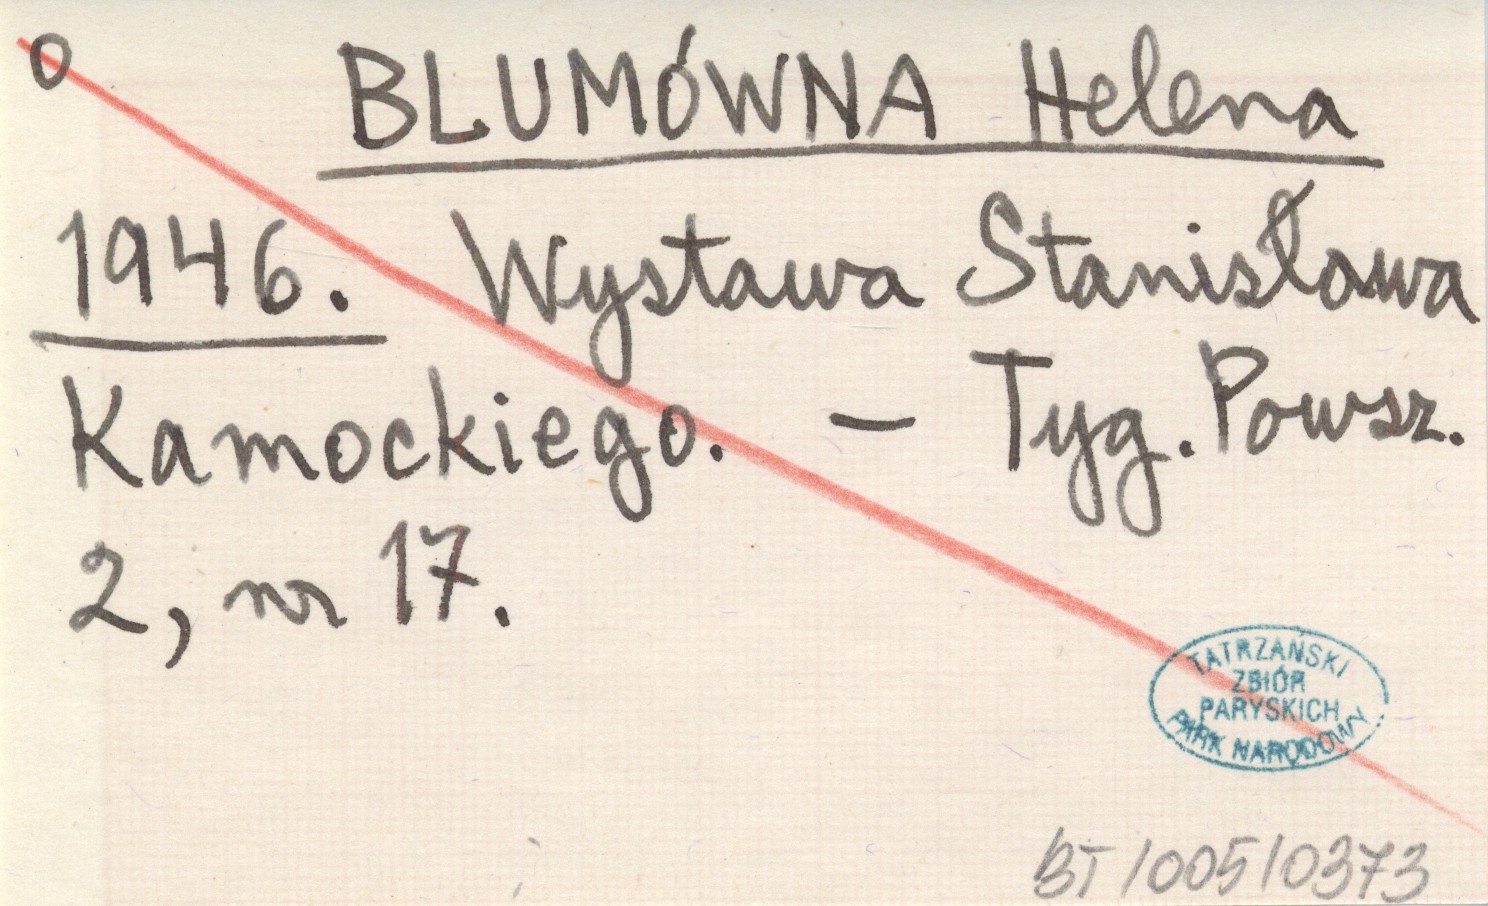 O
BLUMÓWNA Helena
1946. Wystawa Stanisława
Kamockiego. — Tyg. Powsz.
2, nr 17.
TATRZAŃSKI
ZBIÓR
PARYSKICH
PARK NARODOWY
BT/005/0373